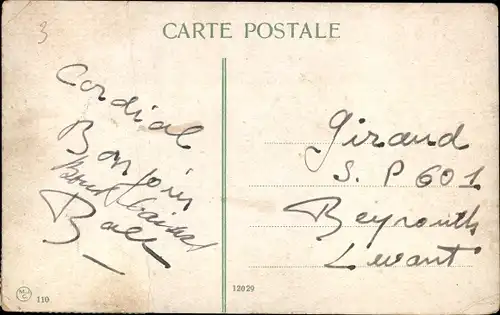 3
CARTE POSTALE
Cordial
Bonjour
Giraud
S. P 601
Beyrouth
Levant
110
12029